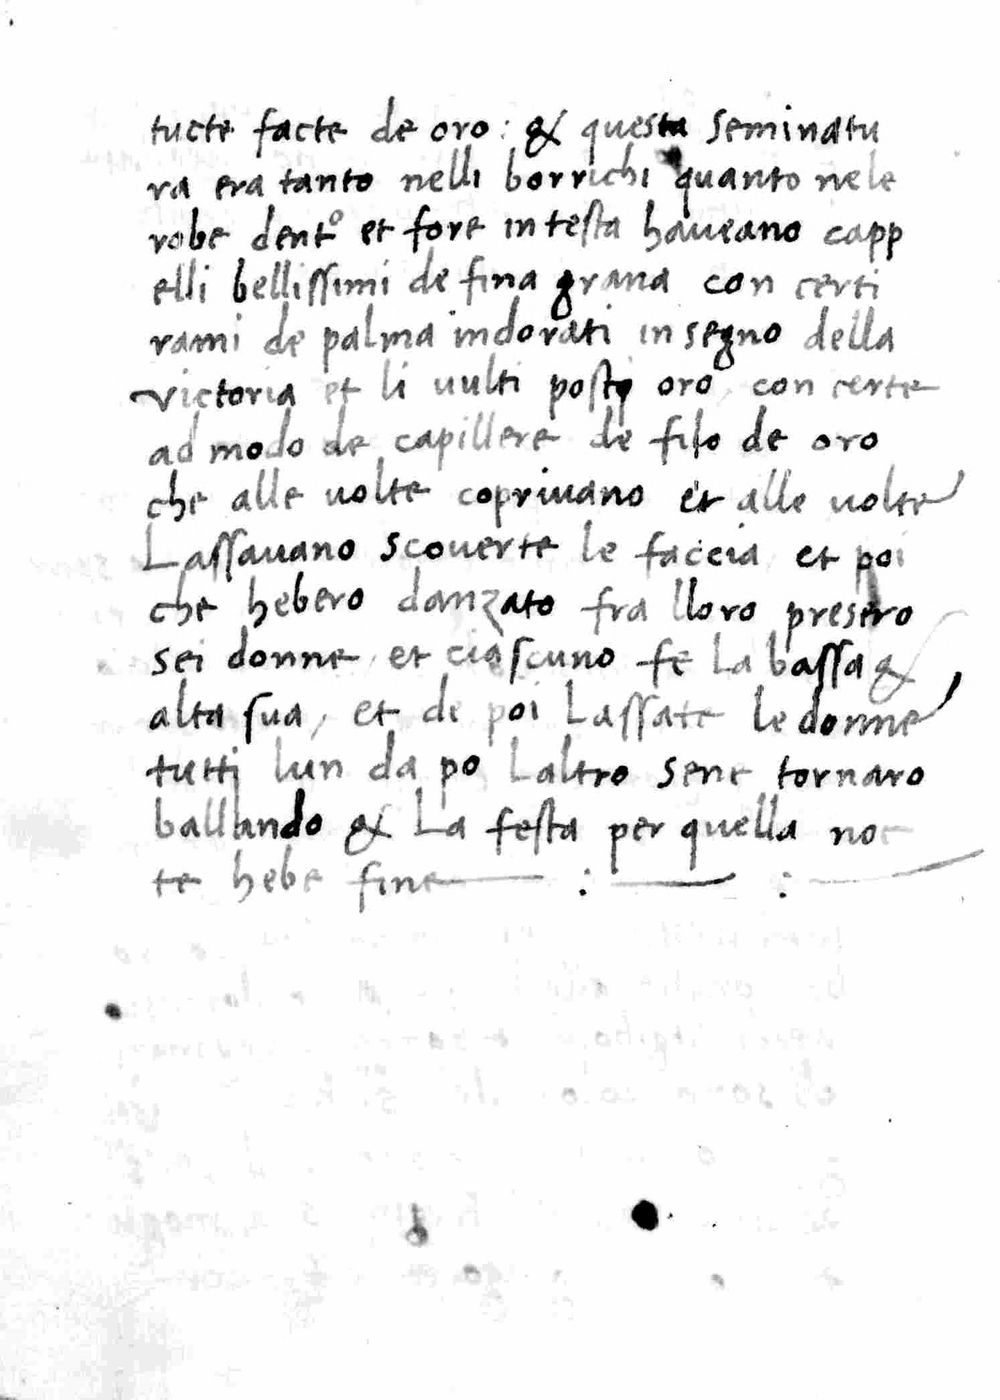 tucte facte de oro : & questa seminatu
ra era tanto nelli borrichi quanto nele
robe dentº et fore in testa haueano capp
elli bellissimi de fina grana con certi
rami de palma indorati in segno della
victoria et li uulti post oro con certe
ad modo de capillere de filo de oro
che alle uolte copriuano et alle uolte
Lassauano scouerte le faccia et poi
che hebero danzato fra lloro presero
sei donne et ciascuno fe La bassa &
alta sua, et de poi Lassate le donne
tutti lun da po Laltro sene tornaro
ballando & La festa per quella noc
te hebe fine : :